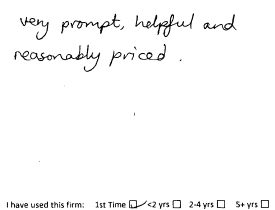 very prompt, helpful and
reasonably priced.
I have used this firm: 1st Time ☑ <2 yrs ☐ 2-4 yrs ☐ 5+ yrs ☐